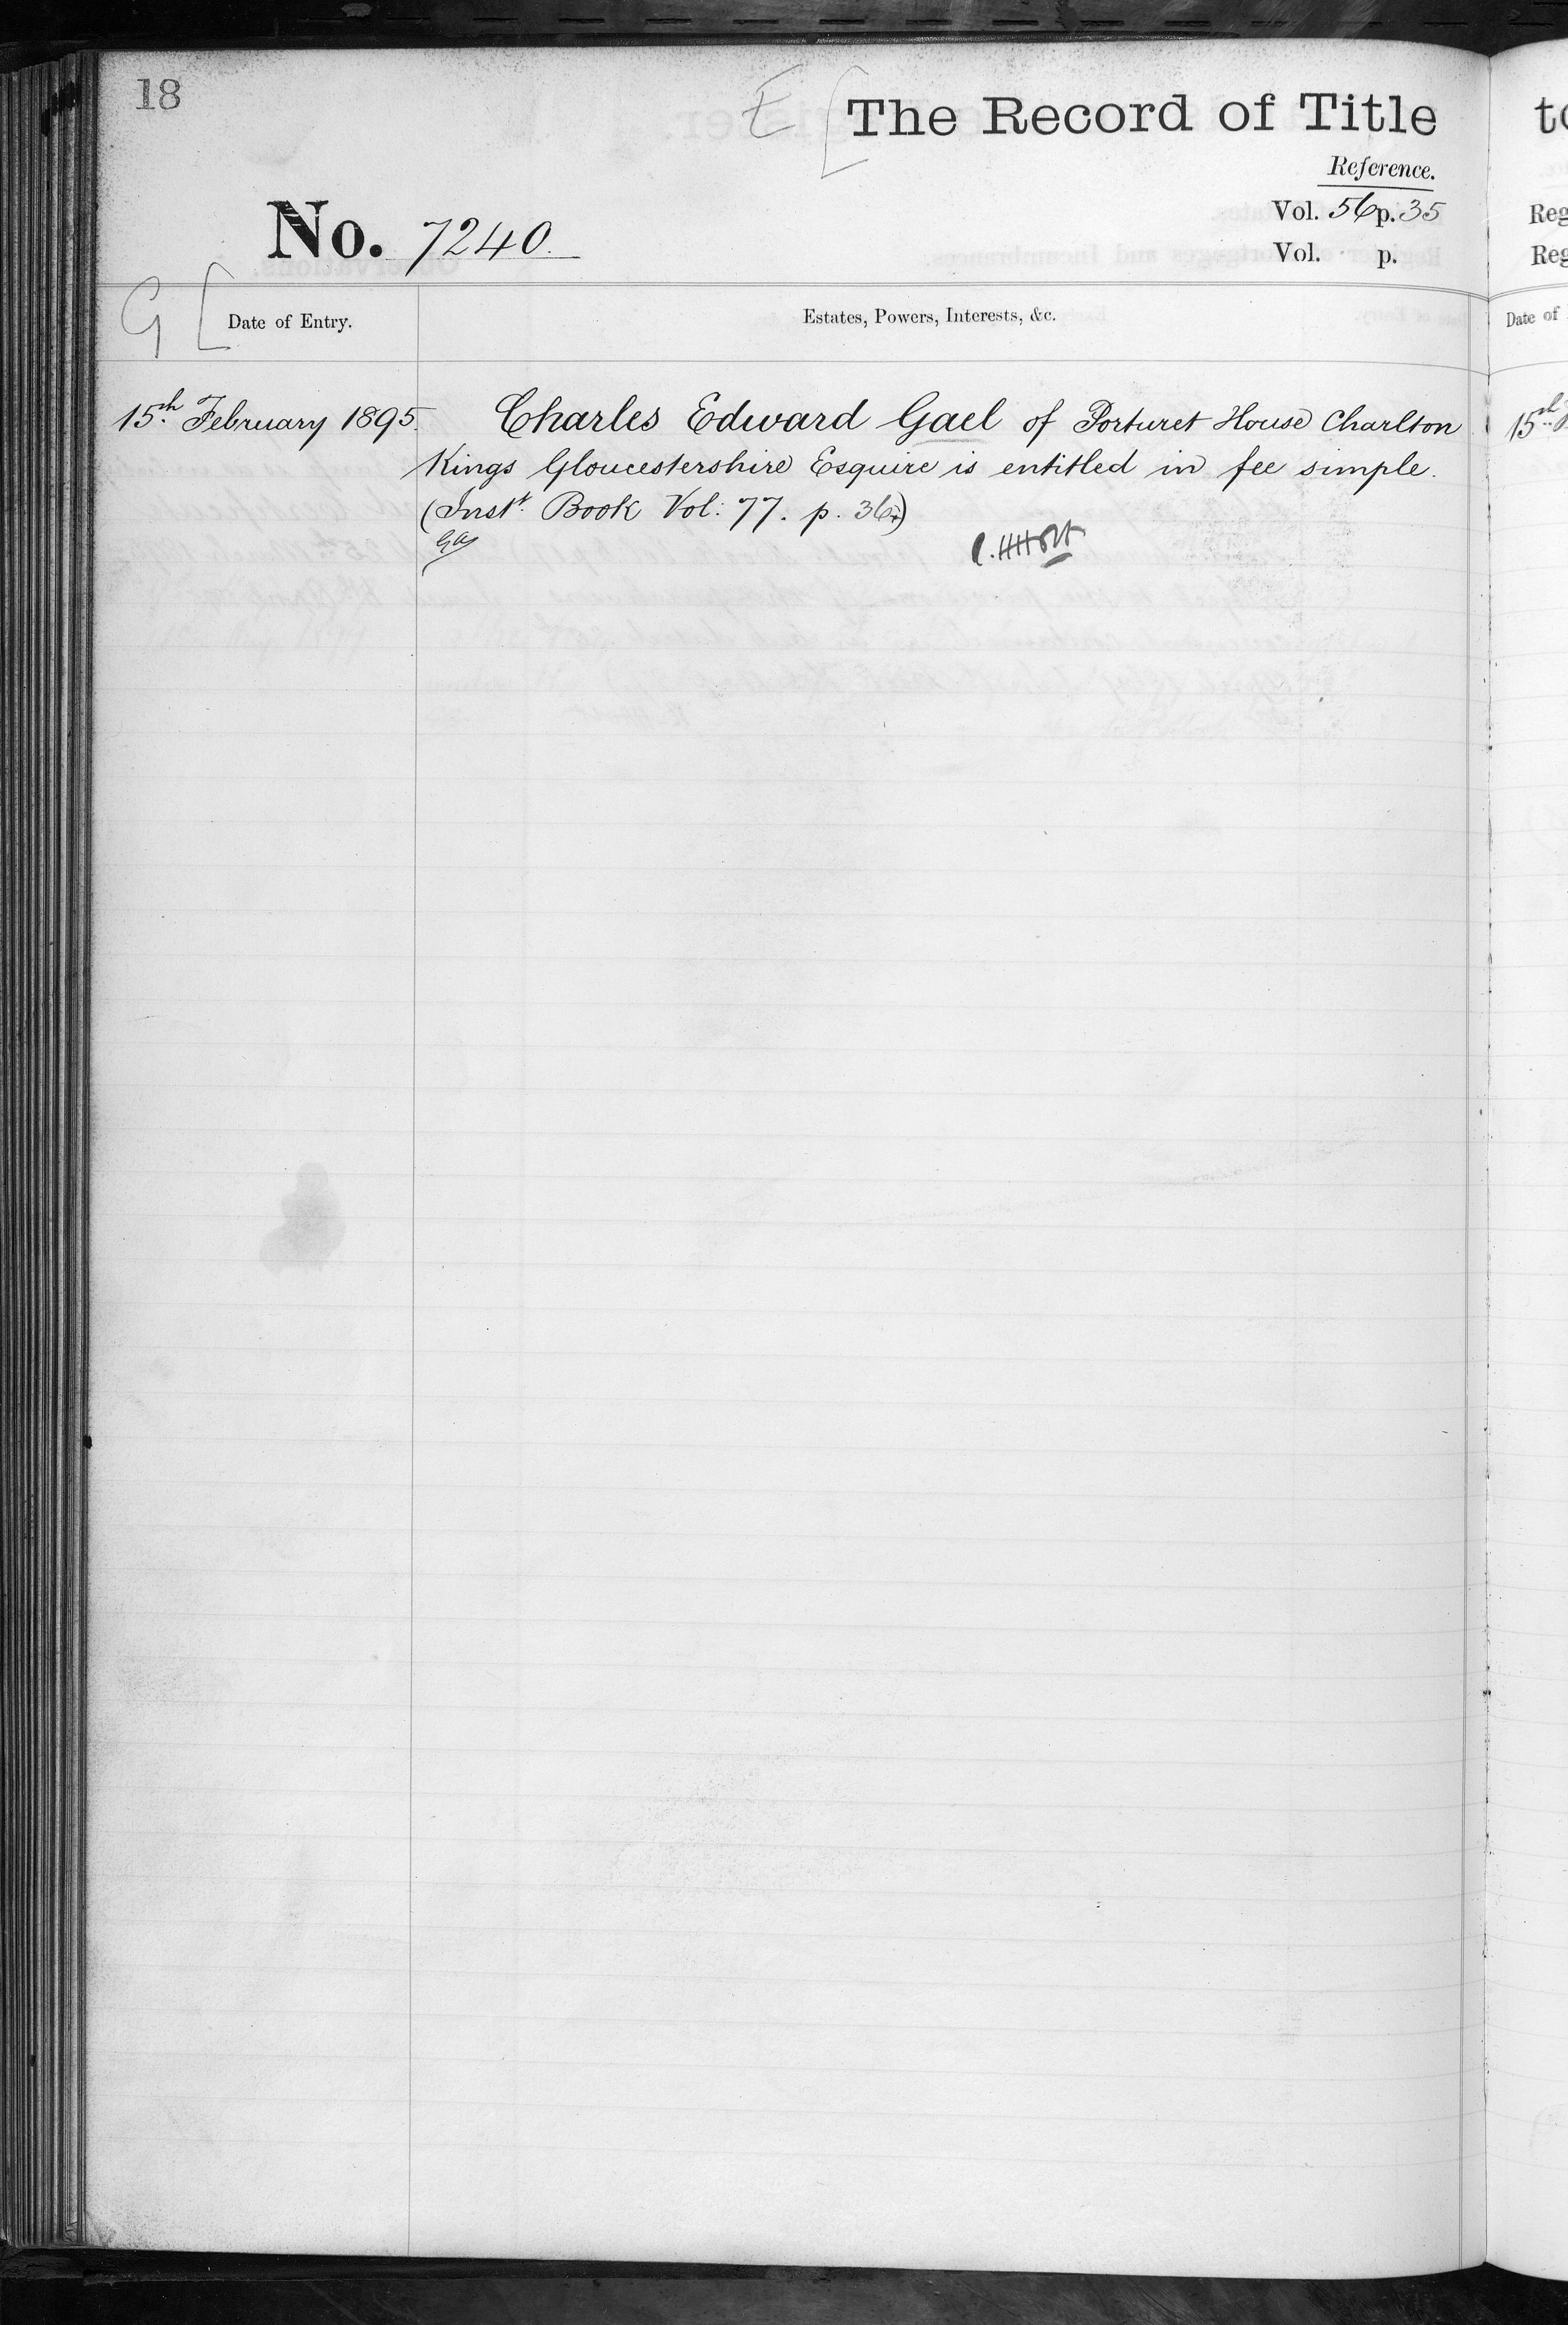 18
E [ The Record of Title
Reference.
No. 7240.
Vol. 56 p. 35
Vol. p.
G [ Date of Entry.
Estates, Powers, Interests, &c.
15th February 1895.
Charles Edward Gael of Porturet House Charlton
Kings Gloucestershire Esquire is entitled in fee simple.
(Inst. Book Vol: 77. p. 36.)
Reg
Reg
Date of
15th